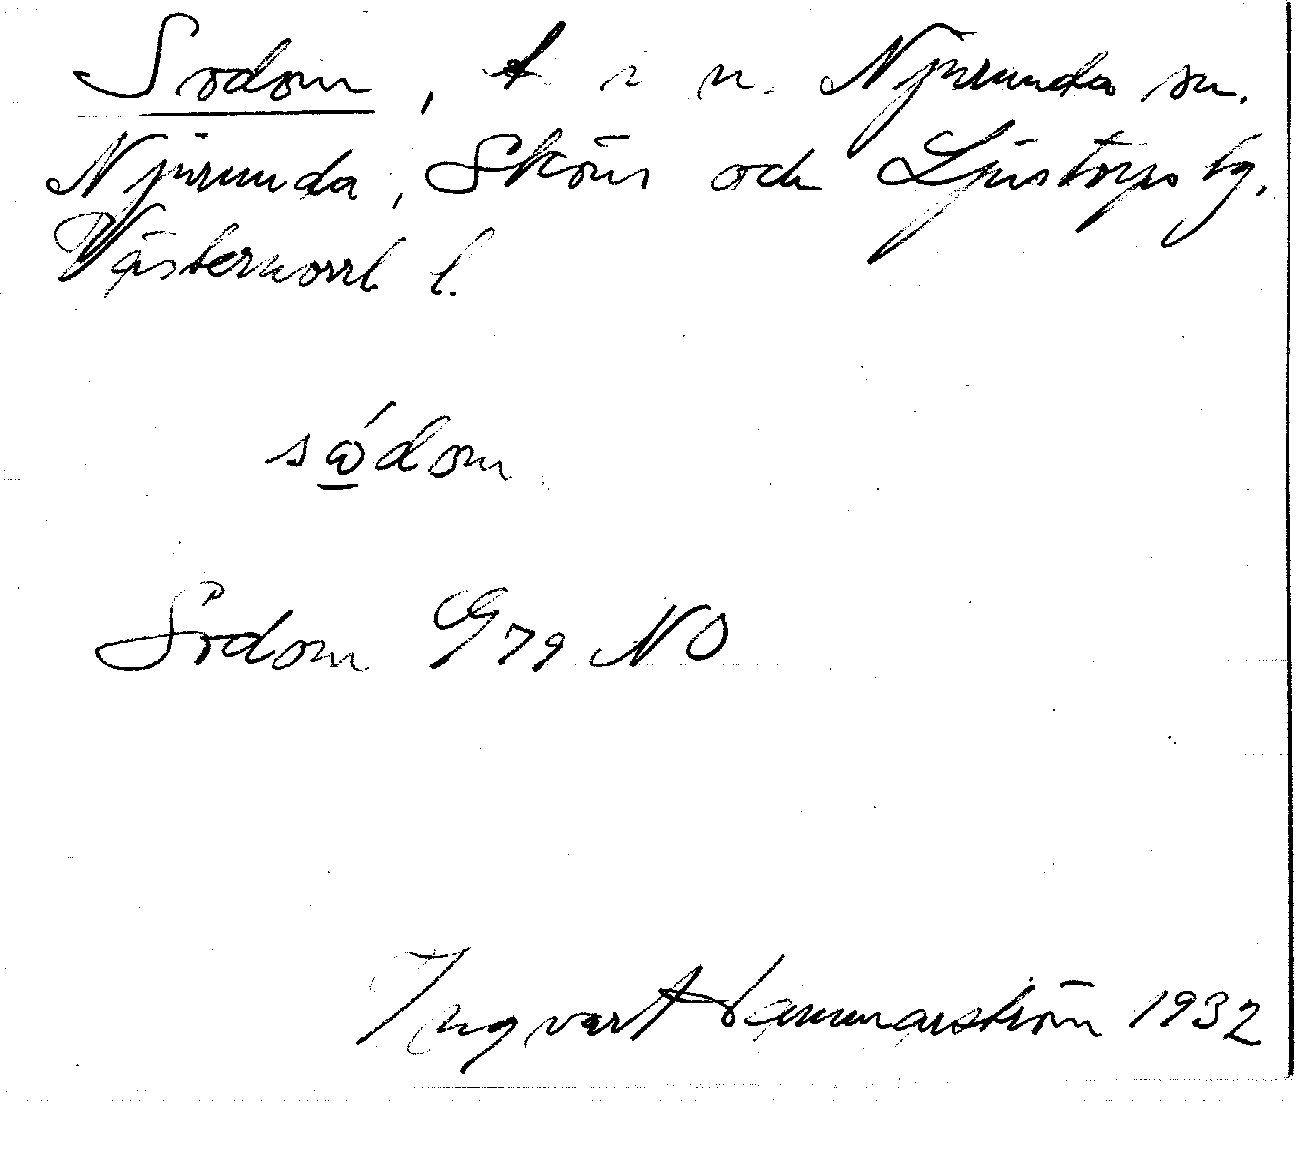 Sodom, t i n. Njurunda sn.
Njurunda, Sköns och Ljustorps tg.
Västernorrl l.
sώdom
Sodom G79 NO
Ingvar Hammarström 1932